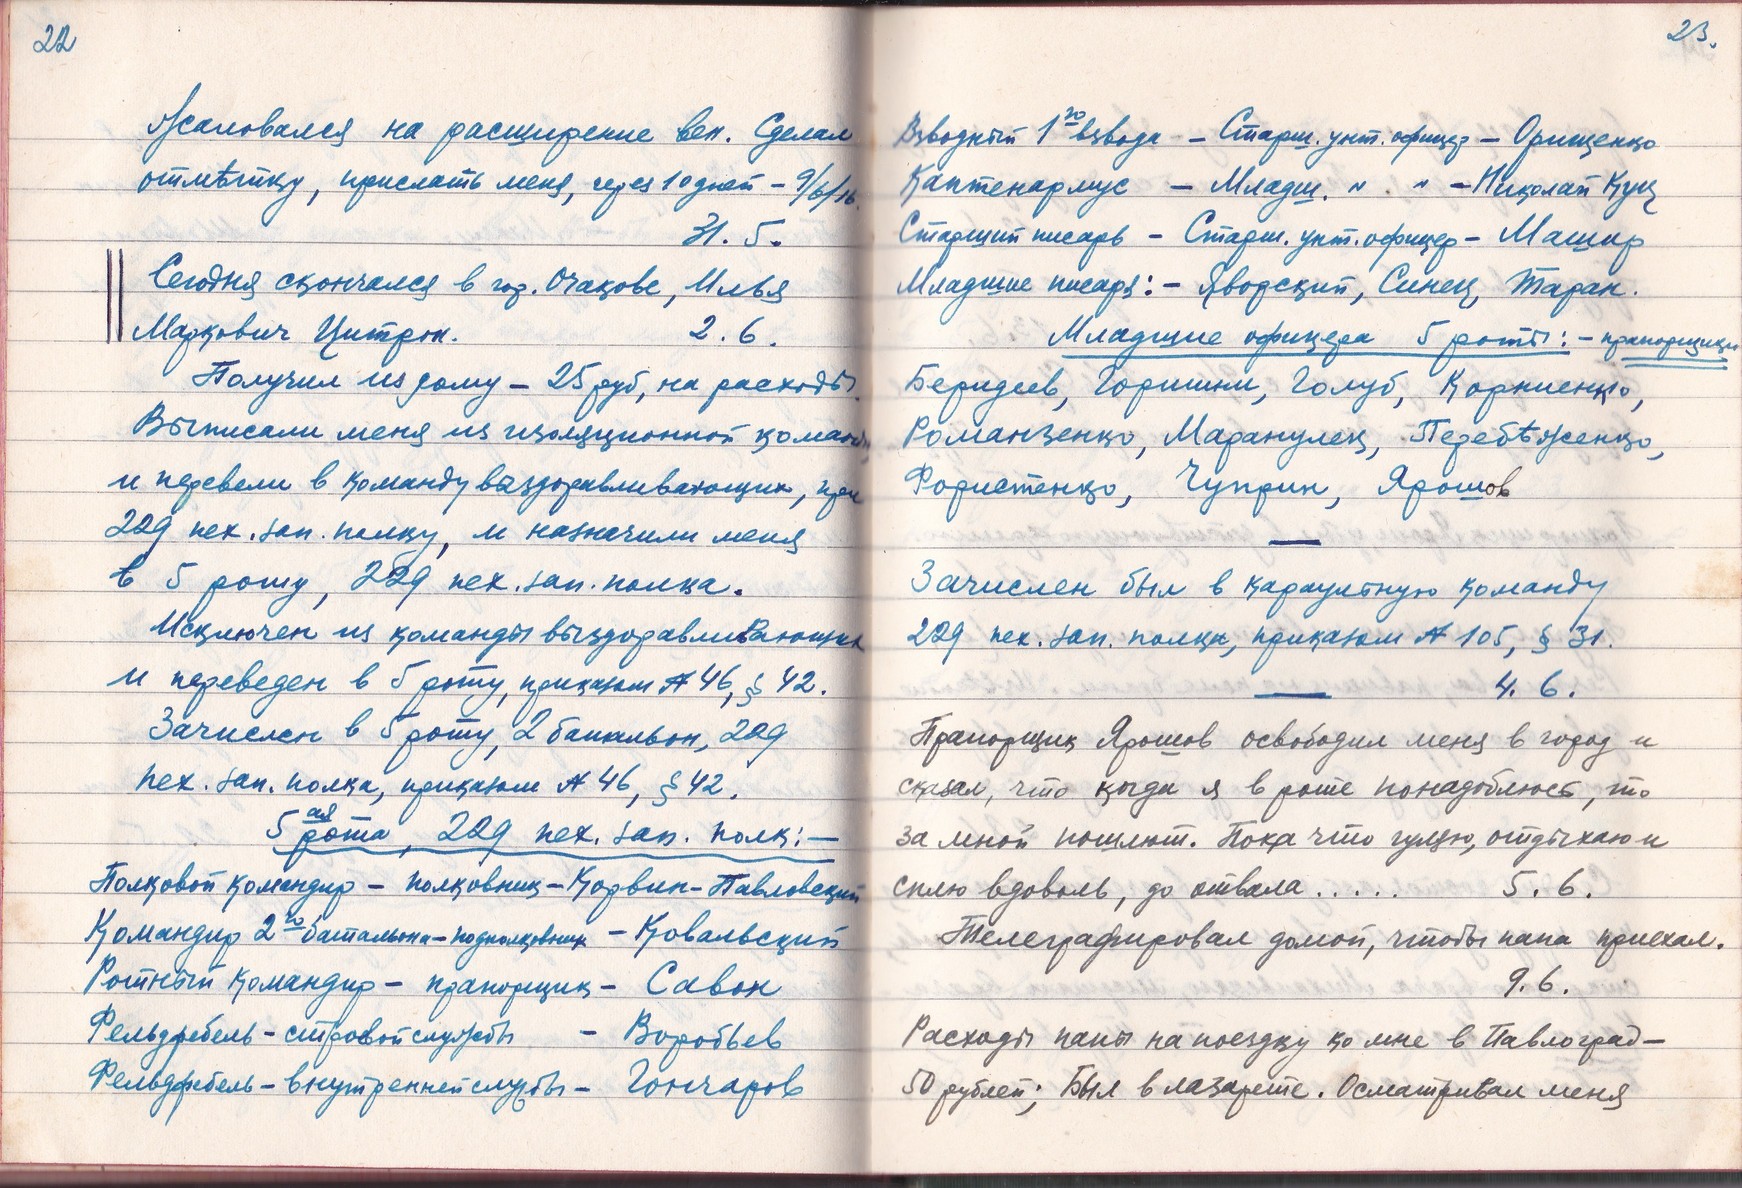 22
Жаловался на расширение вен. Сделал
отмѣтку, прислать меня, через 10 дней – 9/6/16.
31. 5.
Сегодня скончался в гор. Очакове, Илья
Маркович Цитрон. 2. 6.
Получил из дому – 25 руб, на расходы.
Выписали меня из изоляционной команды,
и перевели в команду выздоравливающих, при
229 пех. зап. полку, и назначили меня
в 5 роту, 229 пех. зап. полка.
Исключен из команды выздоравливающих
и переведен в 5 роту, приказом № 46, § 42.
Зачислен в 5 роту, 2 батальон, 229
пех. зап. полка, приказом № 46, § 42.
5ая рота, 229 пех. зап. полк: –
Полковой командир – полковник – Корвин-Павловский
Командир 2го батальона – подполковник – Ковальский
Ротный командир – прапорщик – Савон
Фельдфебель – строевой службы – Воробьев
Фельдфебель – внутренней службы – Гончаров
23.
Взводный 1го взвода – Старш. унт. офицер – Орищенко
Каптенармус – Младш. " . " – Николай Куц
Старший писарь – Старш. унт. офицер – Машир
Младшие писаря: – Яворский, Синец, Таран.
Младшие офицера 5 роты: – прапорщики
Беридеев, Горишни, Голуб, Корниенко,
Романзенко, Маранулец, Перебѣженко,
Фористенко, Чуприн, Ярошов
Зачислен был в караульную команду
229 пех. зап. полка, приказом № 105, § 31.
4. 6.
Прапорщик Ярошов освободил меня в город и
сказал, что когда я в роте понадоблюсь, то
за мной пошлют. Пока что гуляю, отдыхаю и
сплю вдоволь, до отвала. . . . . 5. 6.
Телеграфировал домой, чтобы папа приехал.
9. 6.
Расходы папы на поездку ко мне в Павлоград –
50 рублей; Был в лазарете. Осматривал меня